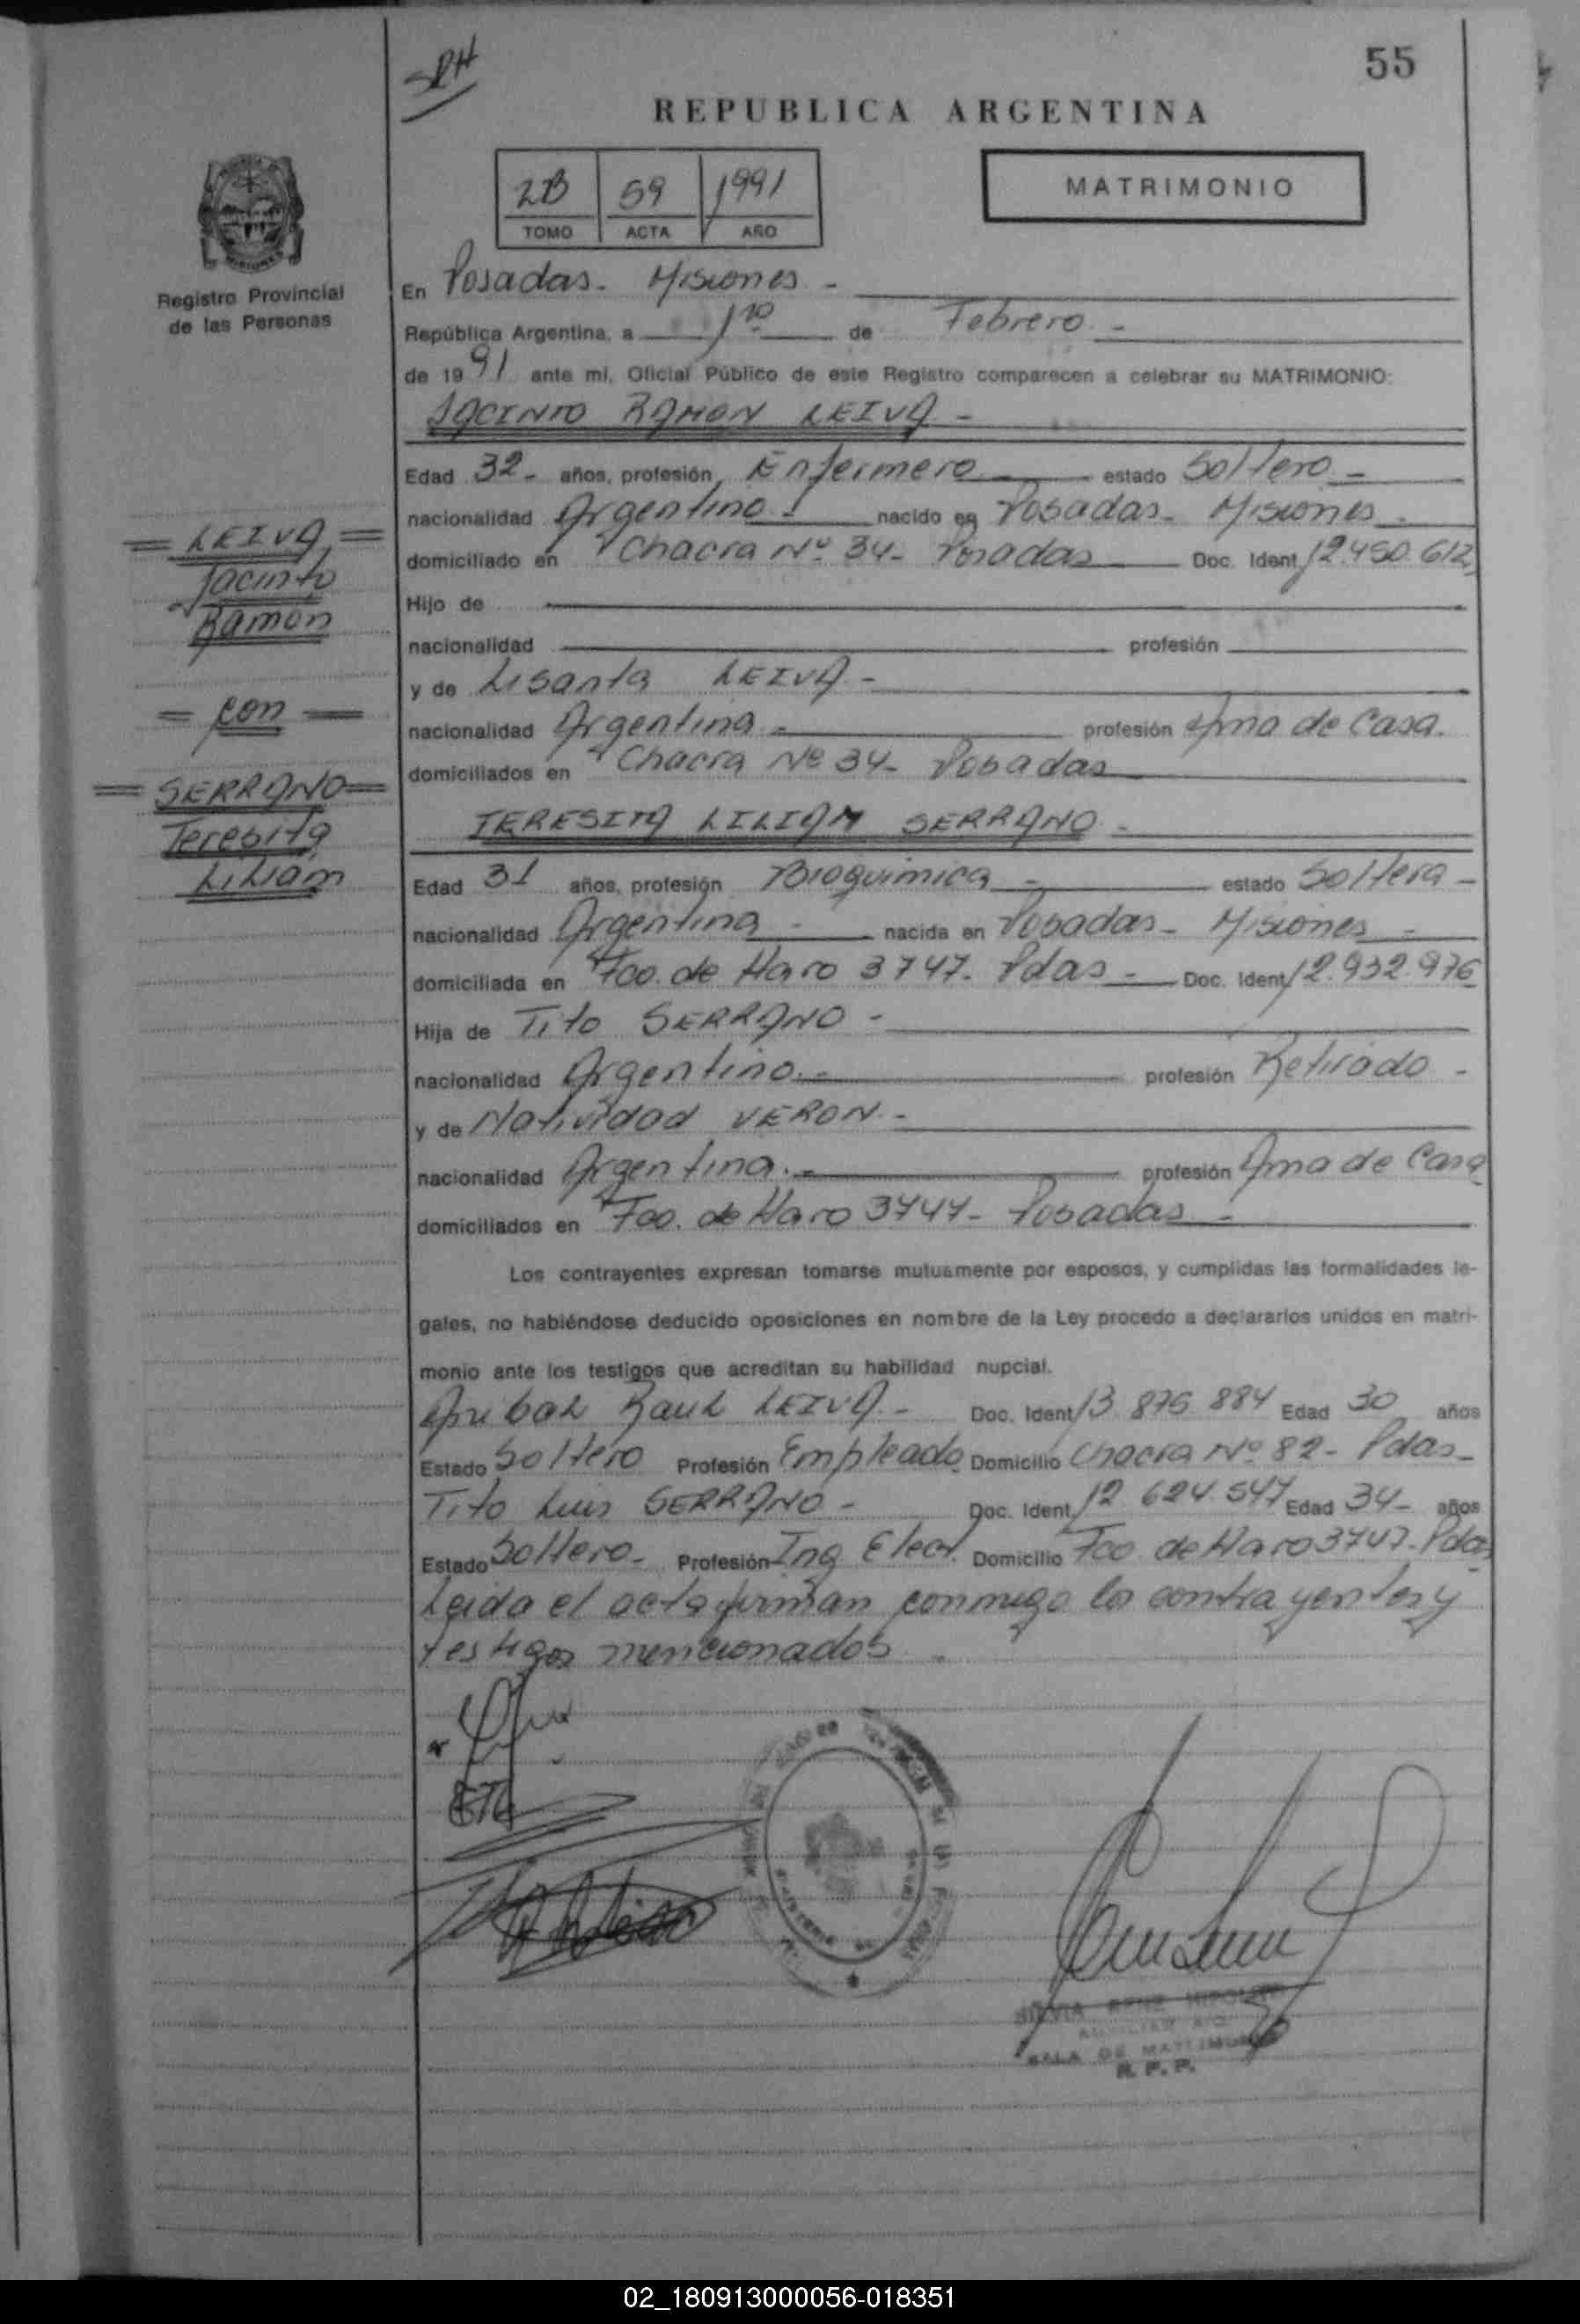 55
REPUBLICA ARGENTINA
2B 59 1991
TOMO ACTA AÑO
MATRIMONIO
Registro Provincial
de las Personas
En Posadas - Misiones -
República Argentina, a 1ro de Febrero -
de 1991 ante mi, Oficial Público de este Registro comparecen a celebrar su MATRIMONIO:
JACINTO RAMON LEIVA -
Edad 32- años, profesión Enfermero estado Soltero -
nacionalidad Argentino - nacido en Posadas - Misiones -
domiciliado en Chacra Nº 34 - Posadas Doc. Ident. 12.450.612
Hijo de
nacionalidad profesión
y de Lisanta LEIVA -
nacionalidad Argentina - profesión Ama de Casa.
domiciliados en Chacra Nº 34 - Posadas
= LEIVA =
Jacinto
Ramon
= con =
= SERRANO =
Teresita
Liliam
TERESITA LILIAM SERRANO -
Edad 31 años, profesión Bioquimica - estado Soltera -
nacionalidad Argentina - nacida en Posadas - Misiones -
domiciliada en Fco. de Haro 3747 - Pdas - Doc. Ident. 12.932.976
Hija de Tito SERRANO -
nacionalidad Argentino - profesión Retirado -
y de Natividad VERON -
nacionalidad Argentina. - profesión Ama de Casa
domiciliados en Fco. de Haro 3747 - Posadas -
Los contrayentes expresan tomarse mutuamente por esposos, y cumplidas las formalidades le-
gales, no habiéndose deducido oposiciones en nombre de la Ley procedo a declararlos unidos en matri-
monio ante los testigos que acreditan su habilidad nupcial.
Raul LEIVA - Doc. Ident. 13.875.884 Edad 30 años
Estado Soltero Profesión Empleado Domicilio Chacra Nº 82 - Pdas -
Tito Luis SERRANO - Doc. Ident. 12.624.547 Edad 34 - años
Estado Soltero - Profesión Ing. Elect. Domicilio Fco de Haro 3747 - Pdas
Leida el acta firman conmigo los contrayentes y
testigos mencionados
SILVIA
SALA DE MATRIMONIO
R. P. P.
02_180913000056-018351